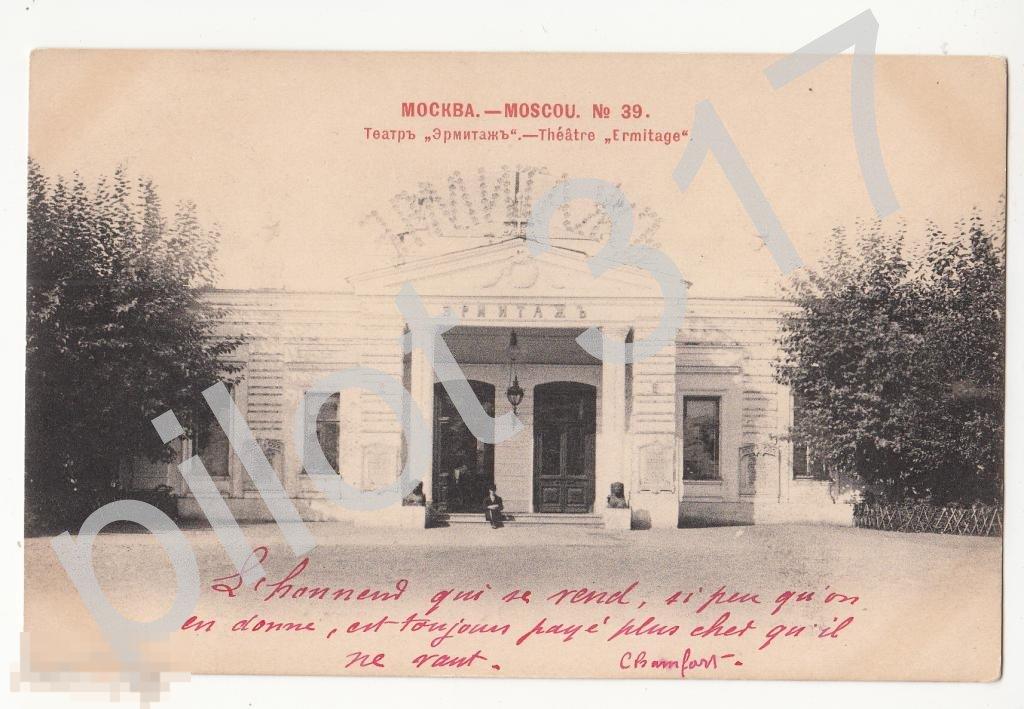 МОСКВА.—MOSCOU. № 39.
Театръ „Эрмитажъ“.—Théâtre „Ermitage“.
ЭРМИТАЖЪ
L'honneud qui se rend, si peu qu'on
en donne, est toujours payé plus cher qu'il
ne vaut. Chamfort.
pilot 317